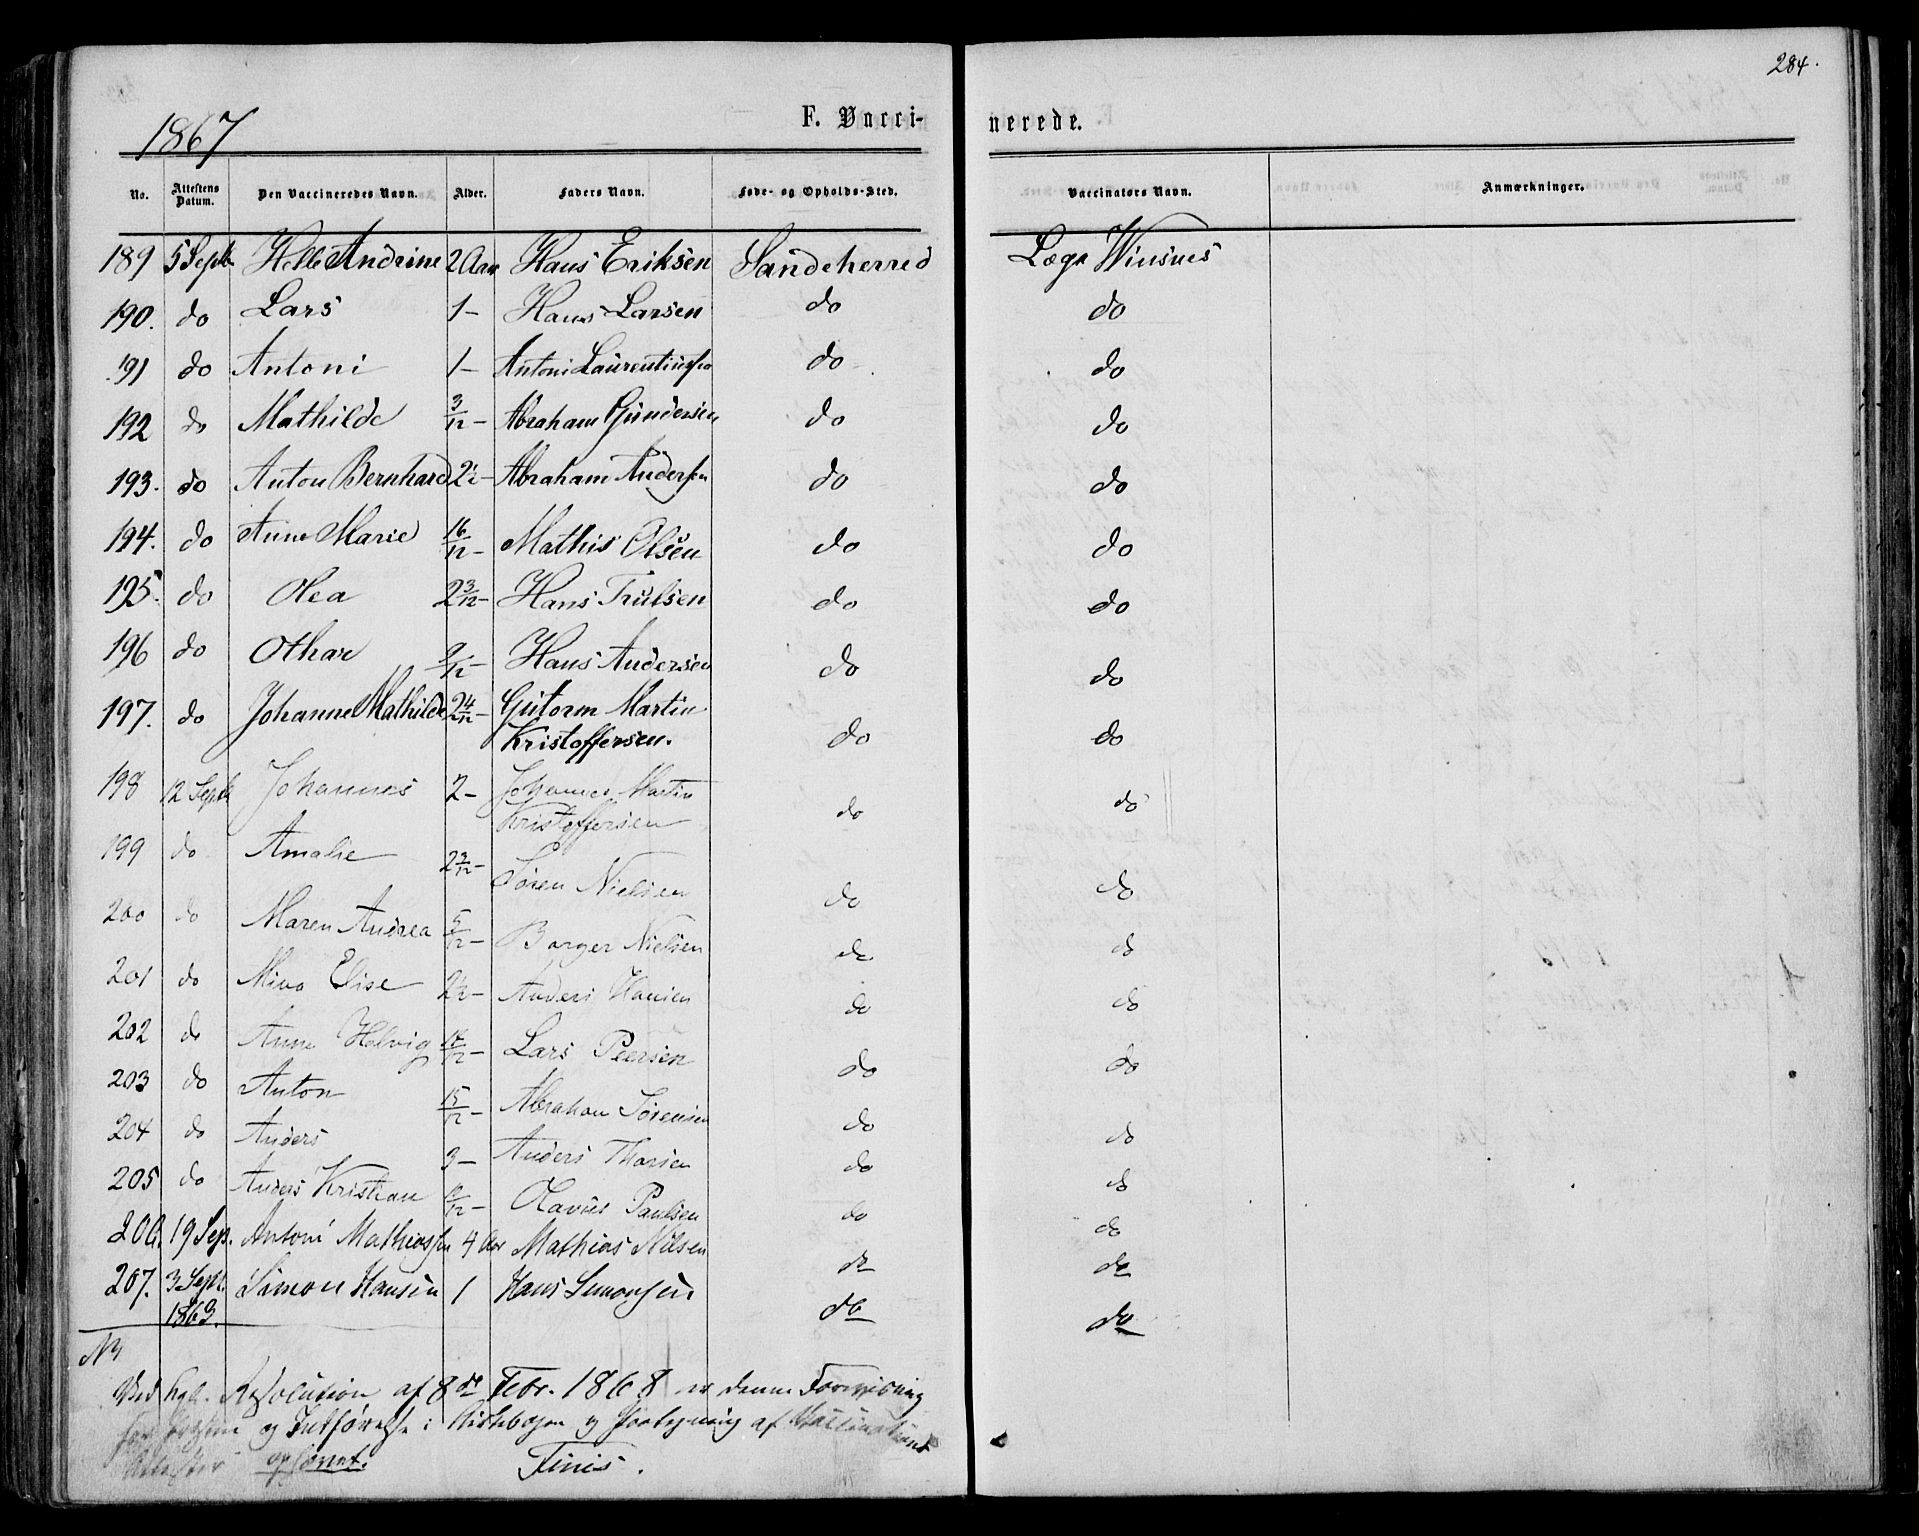 284.
1867
F. Vacci-
nerede.
No. Attestens Datum. Den Vaccineredes Navn. Alder. Faders Navn. Føde- og Opholds-Sted. Vaccinators Navn. Anmærkninger.
189 5 Septb Helle Andrine 2 Aar Hans Eriksen Sandeherred Læge Winsnes
190. do Lars 1 - Hans Larsen do do
191 do Antoni 1 - Antoni Laurentiussen do do
192 do Mathilde 3/12 - Abraham Gundersen do do
193. do Anton Bernhard 2½ - Abraham Andersen do do
194. do Anne Marie 16/12 - Mathis Olsen do do
195. do Olea 2 3/12 - Hans Trulsen do do
196 do Othar 9/12 - Hans Andersen do do
197. do Johanne Mathilde 2 4/12 - Gutorm Martin
Kristoffersen. do do
198 12 Septb Johannes 2 - Johannes Martin
Kristoffersen do do
199 do Amalie 2 3/12 - Søren Nielsen do do
200 do Maren Andrea 5/12 - Borger Nielsen do do
201 do Mina Elise 2½ - Anders Hansen do do
202 do Anne Helvig /12 - Lars Peersen do do
203 do Anton 15/12 - Abraham Sørensen do do
204 do Anders 3 - Anders Thorsen do do
205 do Anders Kristian /12 - Olavus Paulsen do do
206. 19 Sep. Antoni Mathiassen 4 Aar Mathias Nilsen do do
207. 3 Sept. Simon Hansen 1 Hans Simonsen do do
1863.
NB
Ved kgl. Resolution af 8de Febr. 1868 er denne
og Indførelse i Kirkebogen og af
Attester ophævet. Finis.